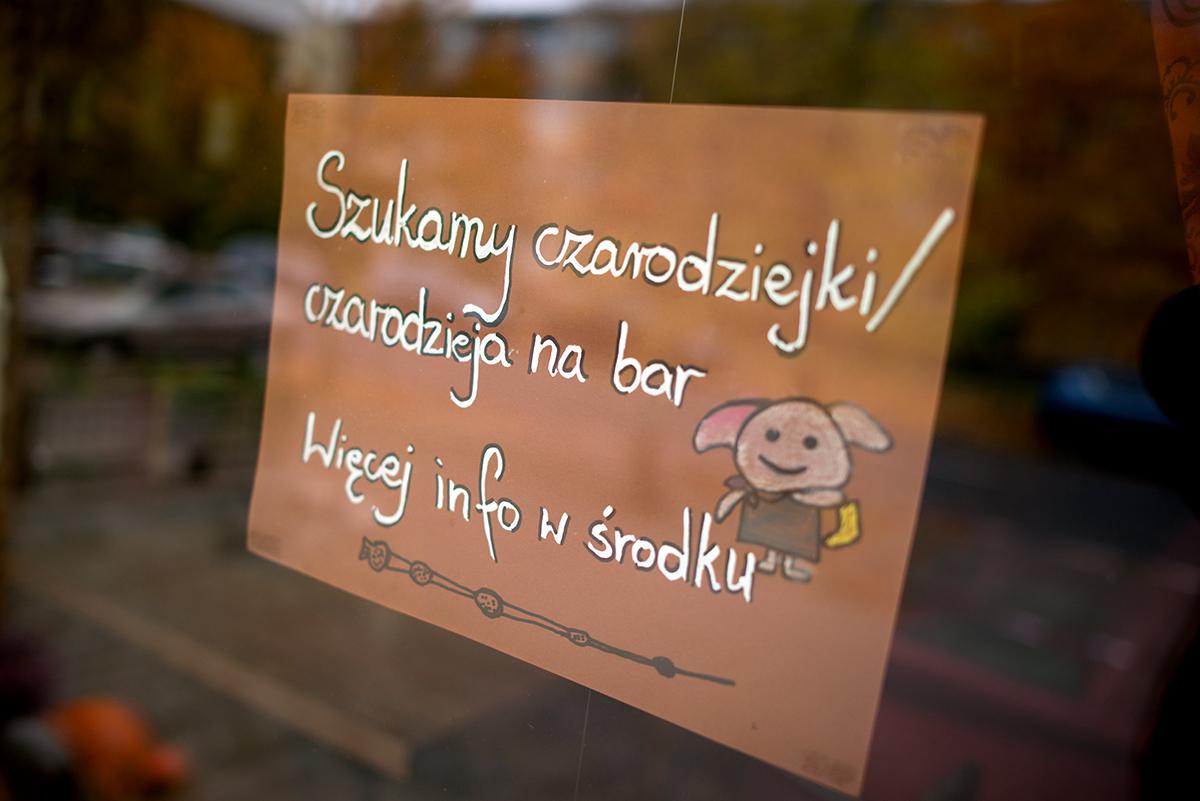 Szukamy czarodziejki/
czarodzieja na bar
Więcej info w środku